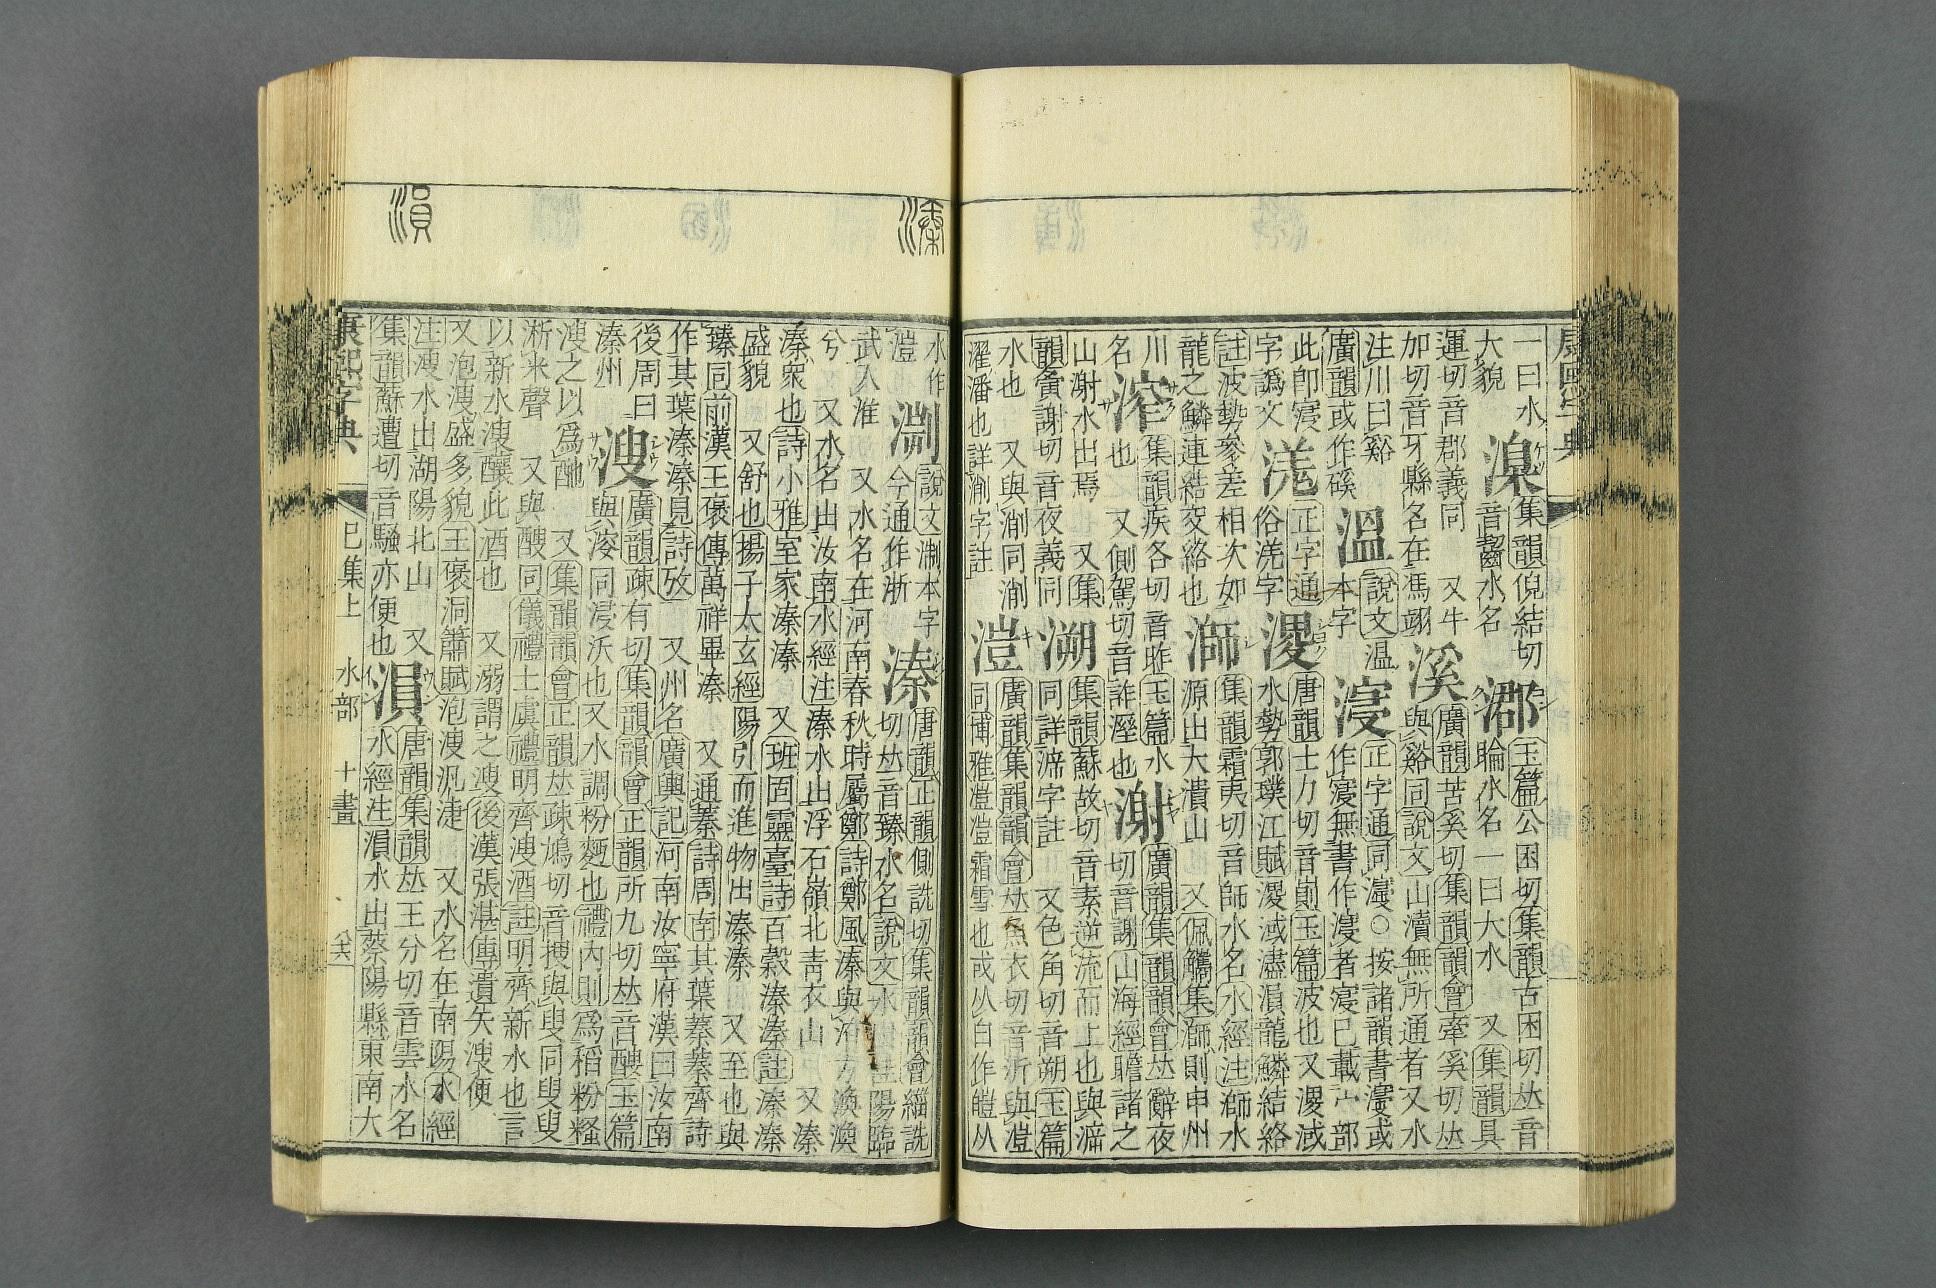 一曰水 湨 集韻倪結切 玉篇公困切集韻古困切𠀤音
大貌 音齧水名 睔水名一曰大水 又集韻具
運切音郡義同 又牛 溪 廣韻苦奚切集韻韻會牽奚切𠀤
加切音牙縣名在馮翊 與谿同說文山瀆無所通者又水
注川曰谿 溫 說文溫 正字通同濅○按諸韻書濅或
廣韻或作磎 本字 作寖無書作濅者寖已載宀部
此卽寖 正字通 溭 唐韻士力切音崱玉篇波也又溭淢
字譌文 俗字 水勢郭璞江賦溭淢濜溳龍鱗結絡
註波勢參差相次如 溮 集韻霜夷切音師水名水經注溮水
龍之鱗連結交絡也 源出大潰山 又佩觿集溮則申州
川 集韻疾各切音昨玉篇水 㴬 廣韻集韻韻會𠀤辭夜
名 也 又側駕切音詐溼也 切音謝山海經瞻諸之
山㴬水出焉 又集 溯 集韻蘇故切音素逆流而上也與㴑
韻寅謝切音夜義同 同詳㴑字註 又色角切音朔玉篇
水也 又與淛同淛 溰 廣韻集韻韻會𠀤魚衣切音沂與凒
濯潘也詳淛字註 同博雅溰溰霜雪也或从白作皚从
溱
溳
水作 說文淛本字 溱 唐韻正韻側詵切集韻韻會緇詵
凒 今通作浙 切𠀤音臻水名說文水出桂陽臨
武入淮 又水名在河南春秋時屬鄭詩鄭風溱與洧方渙渙
兮 又水名出汝南水經注溱水出浮石嶺北靑衣山 又溱
溱衆也詩小雅室家溱溱 又班固靈臺詩百穀溱溱註溱溱
盛貌 又舒也揚子太玄經陽引而進物出溱溱 又至也與
臻同前漢王褒傳萬祥畢溱 又通蓁詩周南其葉蓁蓁齊詩
作其葉溱溱見詩攷 又州名廣輿記河南汝寧府漢曰汝南
後周曰 溲 廣韻疎有切集韻韻會正韻所九切𠀤音醙玉篇
溱州 與浚同浸沃也又水調粉麪也禮內則爲稻粉糔
溲之以爲酏 又集韻韻會正韻𠀤疎鳩切音搜與叟同叟叟
淅米聲 又與醙同儀禮士虞禮明齊溲酒註明齊新水也言
以新水溲釀此酒也 又溺謂之溲後漢張湛傳遺矢溲便
又泡溲盛多貌王褒洞簫賦泡溲汎㨗 又水名在南陽水經
注溲水出湖陽北山 又 溳 唐韻集韻𠀤王分切音雲水名
集韻蘇遭切音騷亦便也 水經注溳水出蔡陽縣東南大
康熙字典 巳集上 水部 十畫